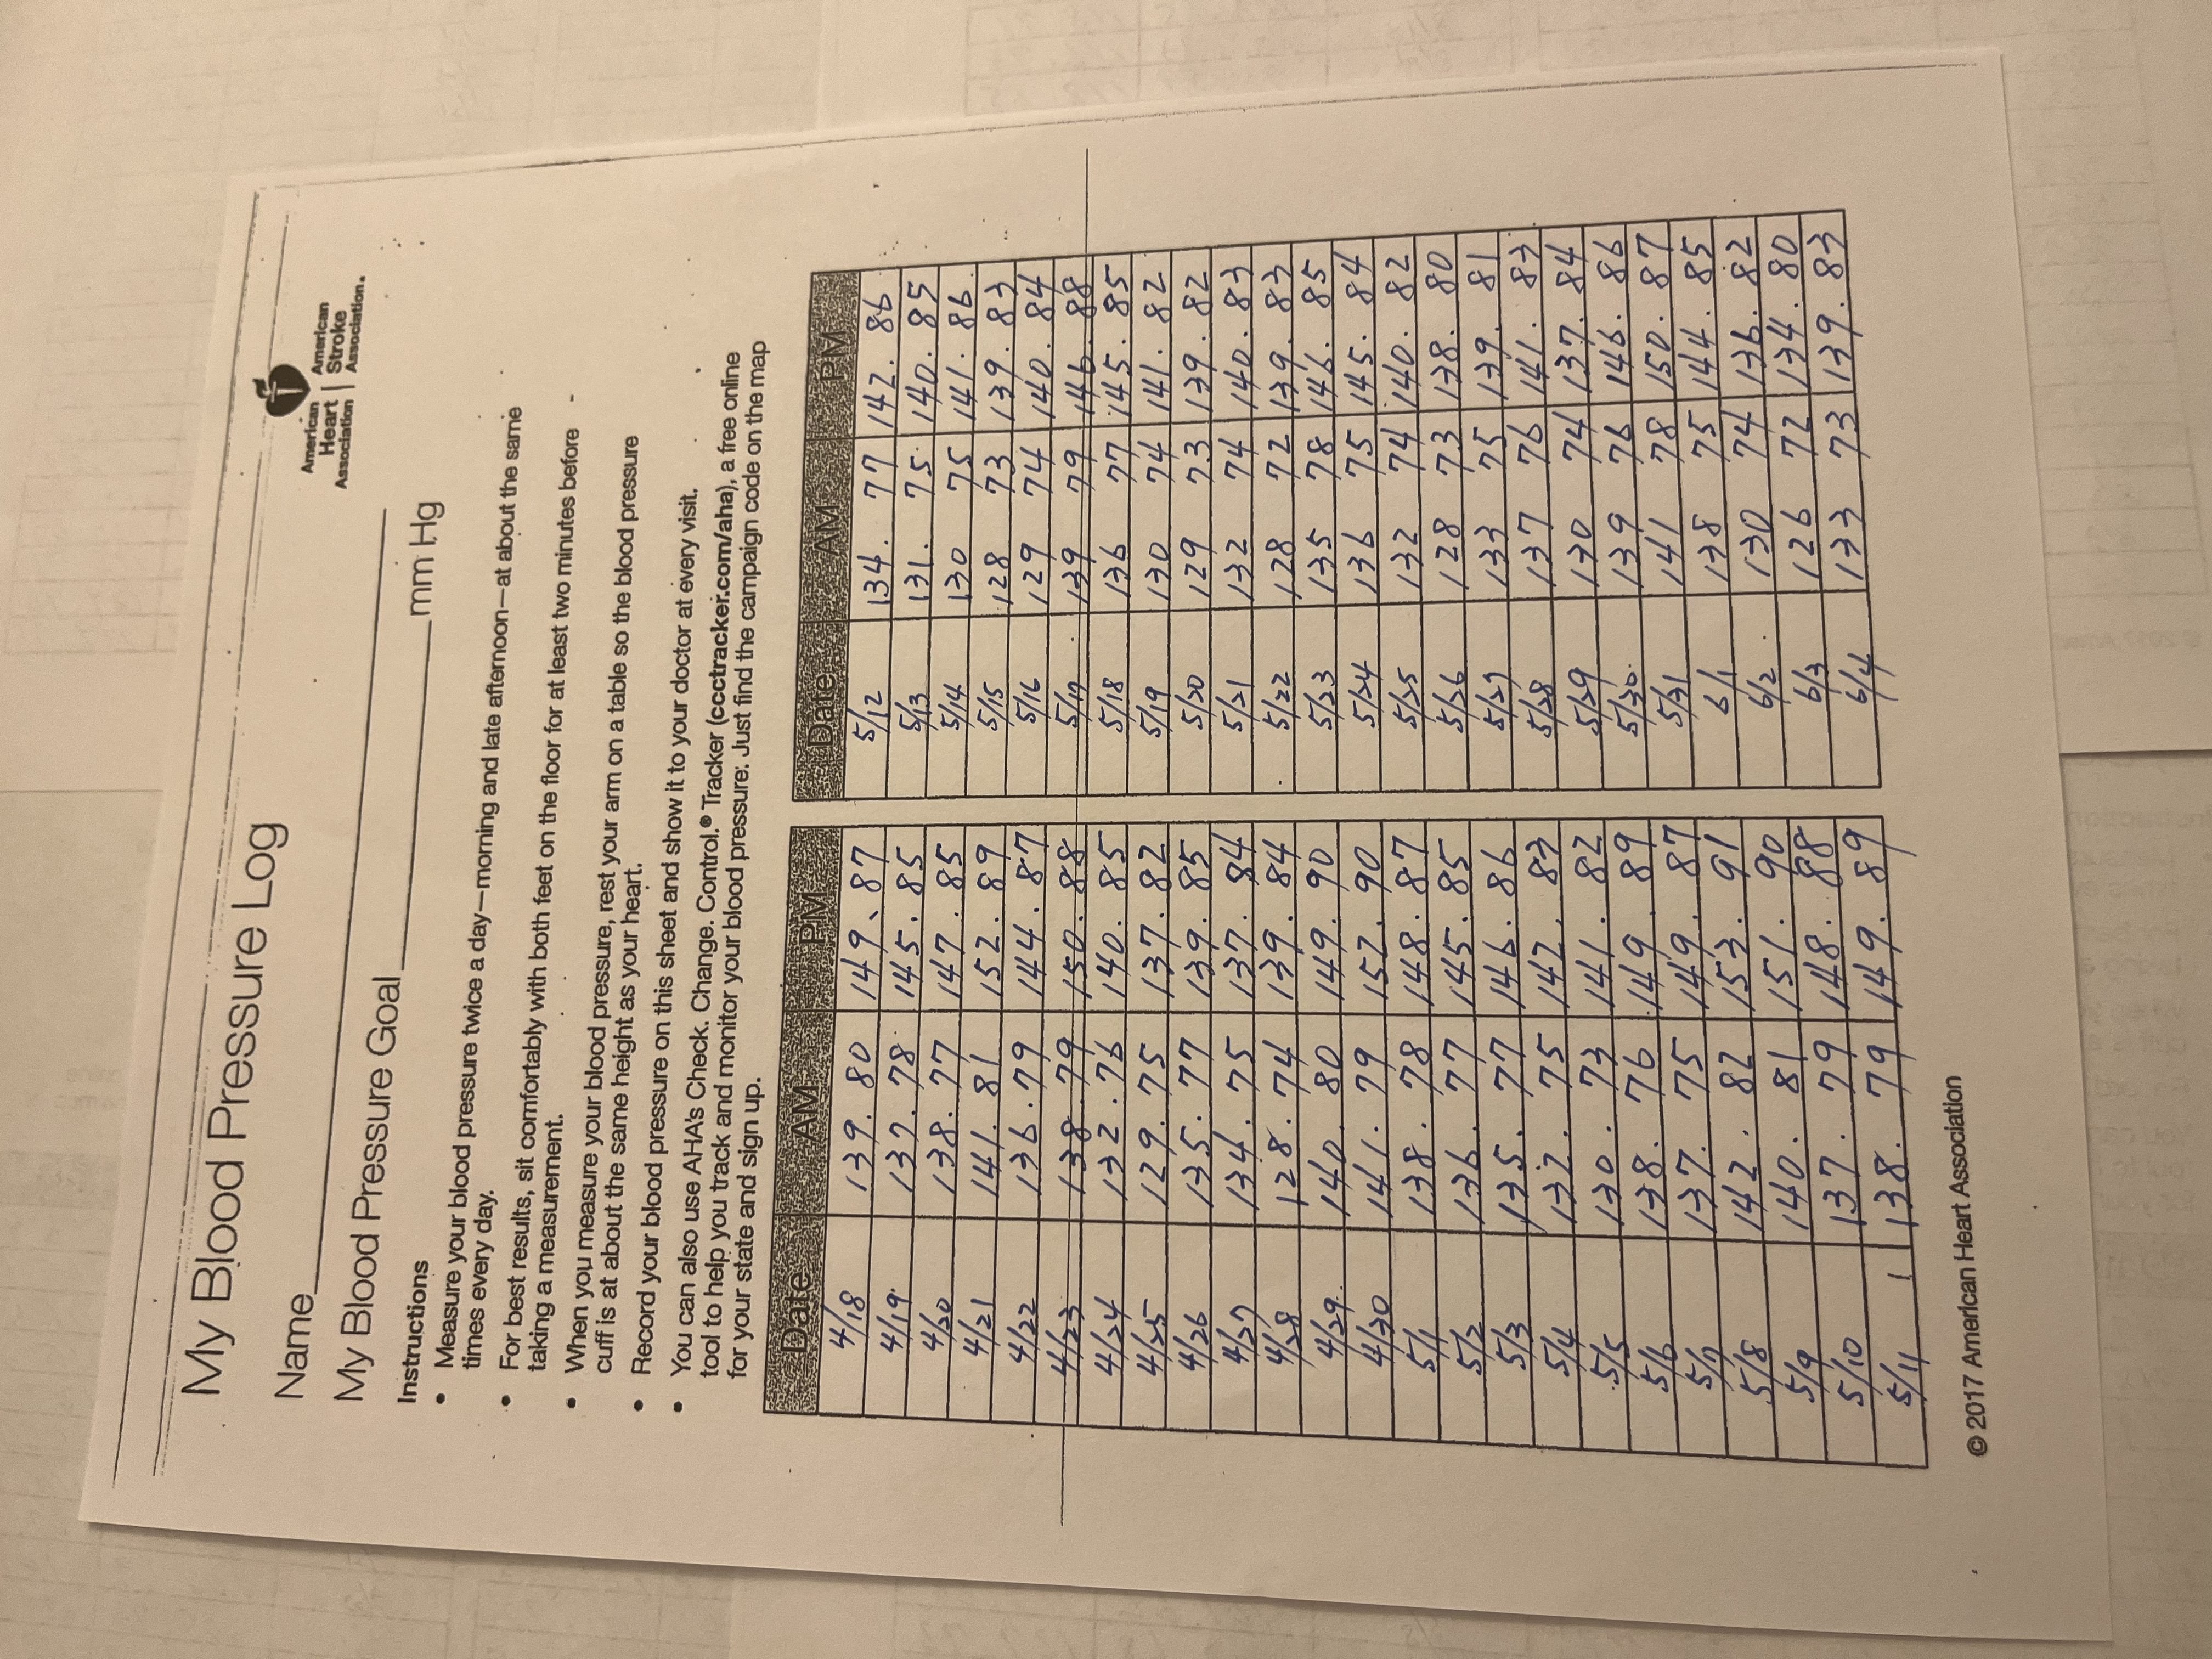 My Blood Pressure Log
American Heart Association
American Stroke Association.
Name
My Blood Pressure Goal mm Hg
Instructions
• Measure your blood pressure twice a day—morning and late afternoon—at about the same
times every day.
• For best results, sit comfortably with both feet on the floor for at least two minutes before
taking a measurement.
• When you measure your blood pressure, rest your arm on a table so the blood pressure
cuff is at about the same height as your heart.
• Record your blood pressure on this sheet and show it to your doctor at every visit.
• You can also use AHA's Check. Change. Control.® Tracker (ccctracker.com/aha), a free online
tool to help you track and monitor your blood pressure. Just find the campaign code on the map
for your state and sign up.
Date AM PM
4/18 139. 80 149. 87
4/19 137. 78 145. 85
4/20 138. 77 147. 85
4/21 141. 81 152. 89
4/22 136. 79 144. 87
4/23 138. 79 150. 88
4/24 132. 76 140. 85
4/25 129. 75 137. 82
4/26 135. 77 139. 85
4/27 134. 75 137. 84
4/28 128. 74 139. 84
4/29 140. 80 149. 90
4/30 141. 79 152. 90
5/1 138. 78 148. 87
5/2 136. 77 145. 85
5/3 135. 77 146. 86
5/4 132. 75 142. 83
5/5 130. 73 141. 82
5/6 138. 76 149. 89
5/7 137. 75 149. 87
5/8 142. 82 153. 91
5/9 140. 81 151. 90
5/10 137. 79 148. 88
5/11 138. 79 149. 89
Date AM PM
5/12 134. 77 142. 86
5/13 131. 75 140. 85
5/14 130 75 141. 86
5/15 128 73 139. 83
5/16 129 74 140. 84
5/17 139 79 146. 88
5/18 136 77 145. 85
5/19 130 74 141. 82
5/20 129 73 139. 82
5/21 132 74 140. 83
5/22 128 72 139. 83
5/23 135 78 146. 85
5/24 136 75 145. 84
5/25 132 74 140. 82
5/26 128 73 138. 80
5/27 133 75 139. 81
5/28 137 76 141. 83
5/29 130 74 137. 84
5/30 139 76 146. 86
5/31 141 78 150. 87
6/1 138 75 144. 85
6/2 130 74 136. 82
6/3 126 72 134. 80
6/4 133 73 139. 83
© 2017 American Heart Association